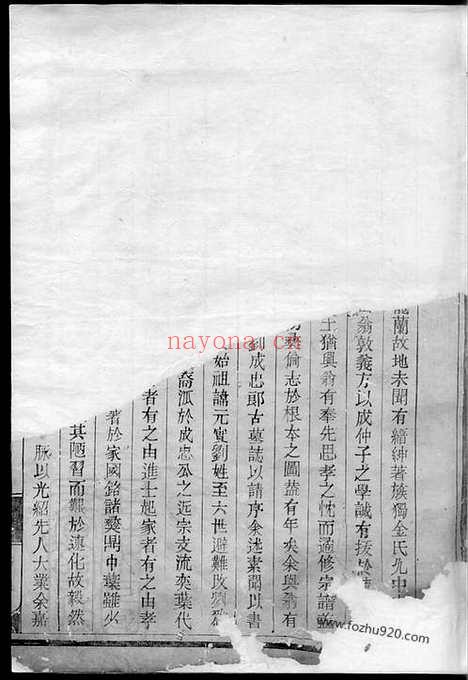 蘭故地未聞有縉紳著族獨金氏允中
翁敦義方以成仲子之學誠有扶
士猶興翁有奉先思孝之忱而遹修宗譜
倫志於根本之圖葢有年矣余與翁有
到成忠郎古墓誌以請序余述素聞以書
始祖諱元寅劉姓至六世避難改
裔派於成忠公之近宗支流奕葉代
者有之由進士起家者有之由孝
著於家國銘諸彝鼎中葉雖少
其陋習而難於速化故毅然
脈以光紹先人大業余嘉
nayona.cn
www.fozhu920.com